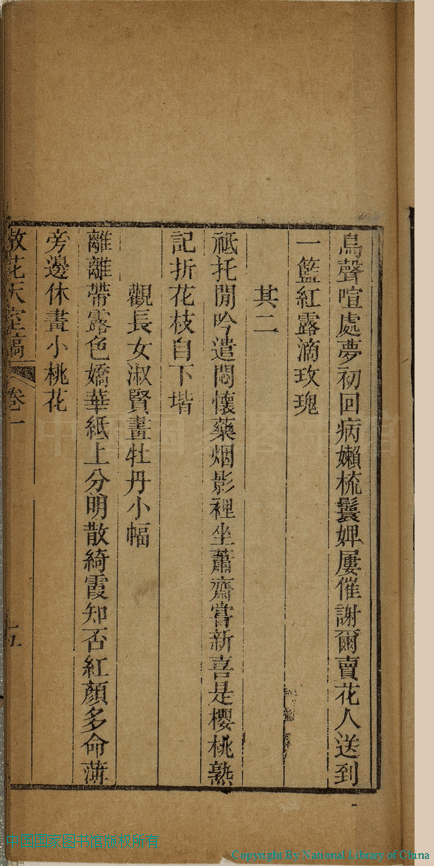 鳥聲喧處夢初回病嬾梳鬟婢屢催謝爾賣花人送到
一籃紅露滴玫瑰
其二
祗托閒吟遣悶懷藥烟影裡坐蕭齋嘗新喜是櫻桃熟
記折花枝自下堦
觀長女淑賢畫牡丹小幅
離離帶露色嬌華紙上分明散綺霞知否紅顏多命薄
旁邊休畫小桃花
散花天室稿 卷一
中国国家图书馆版权所有
Copyright By National Library of China